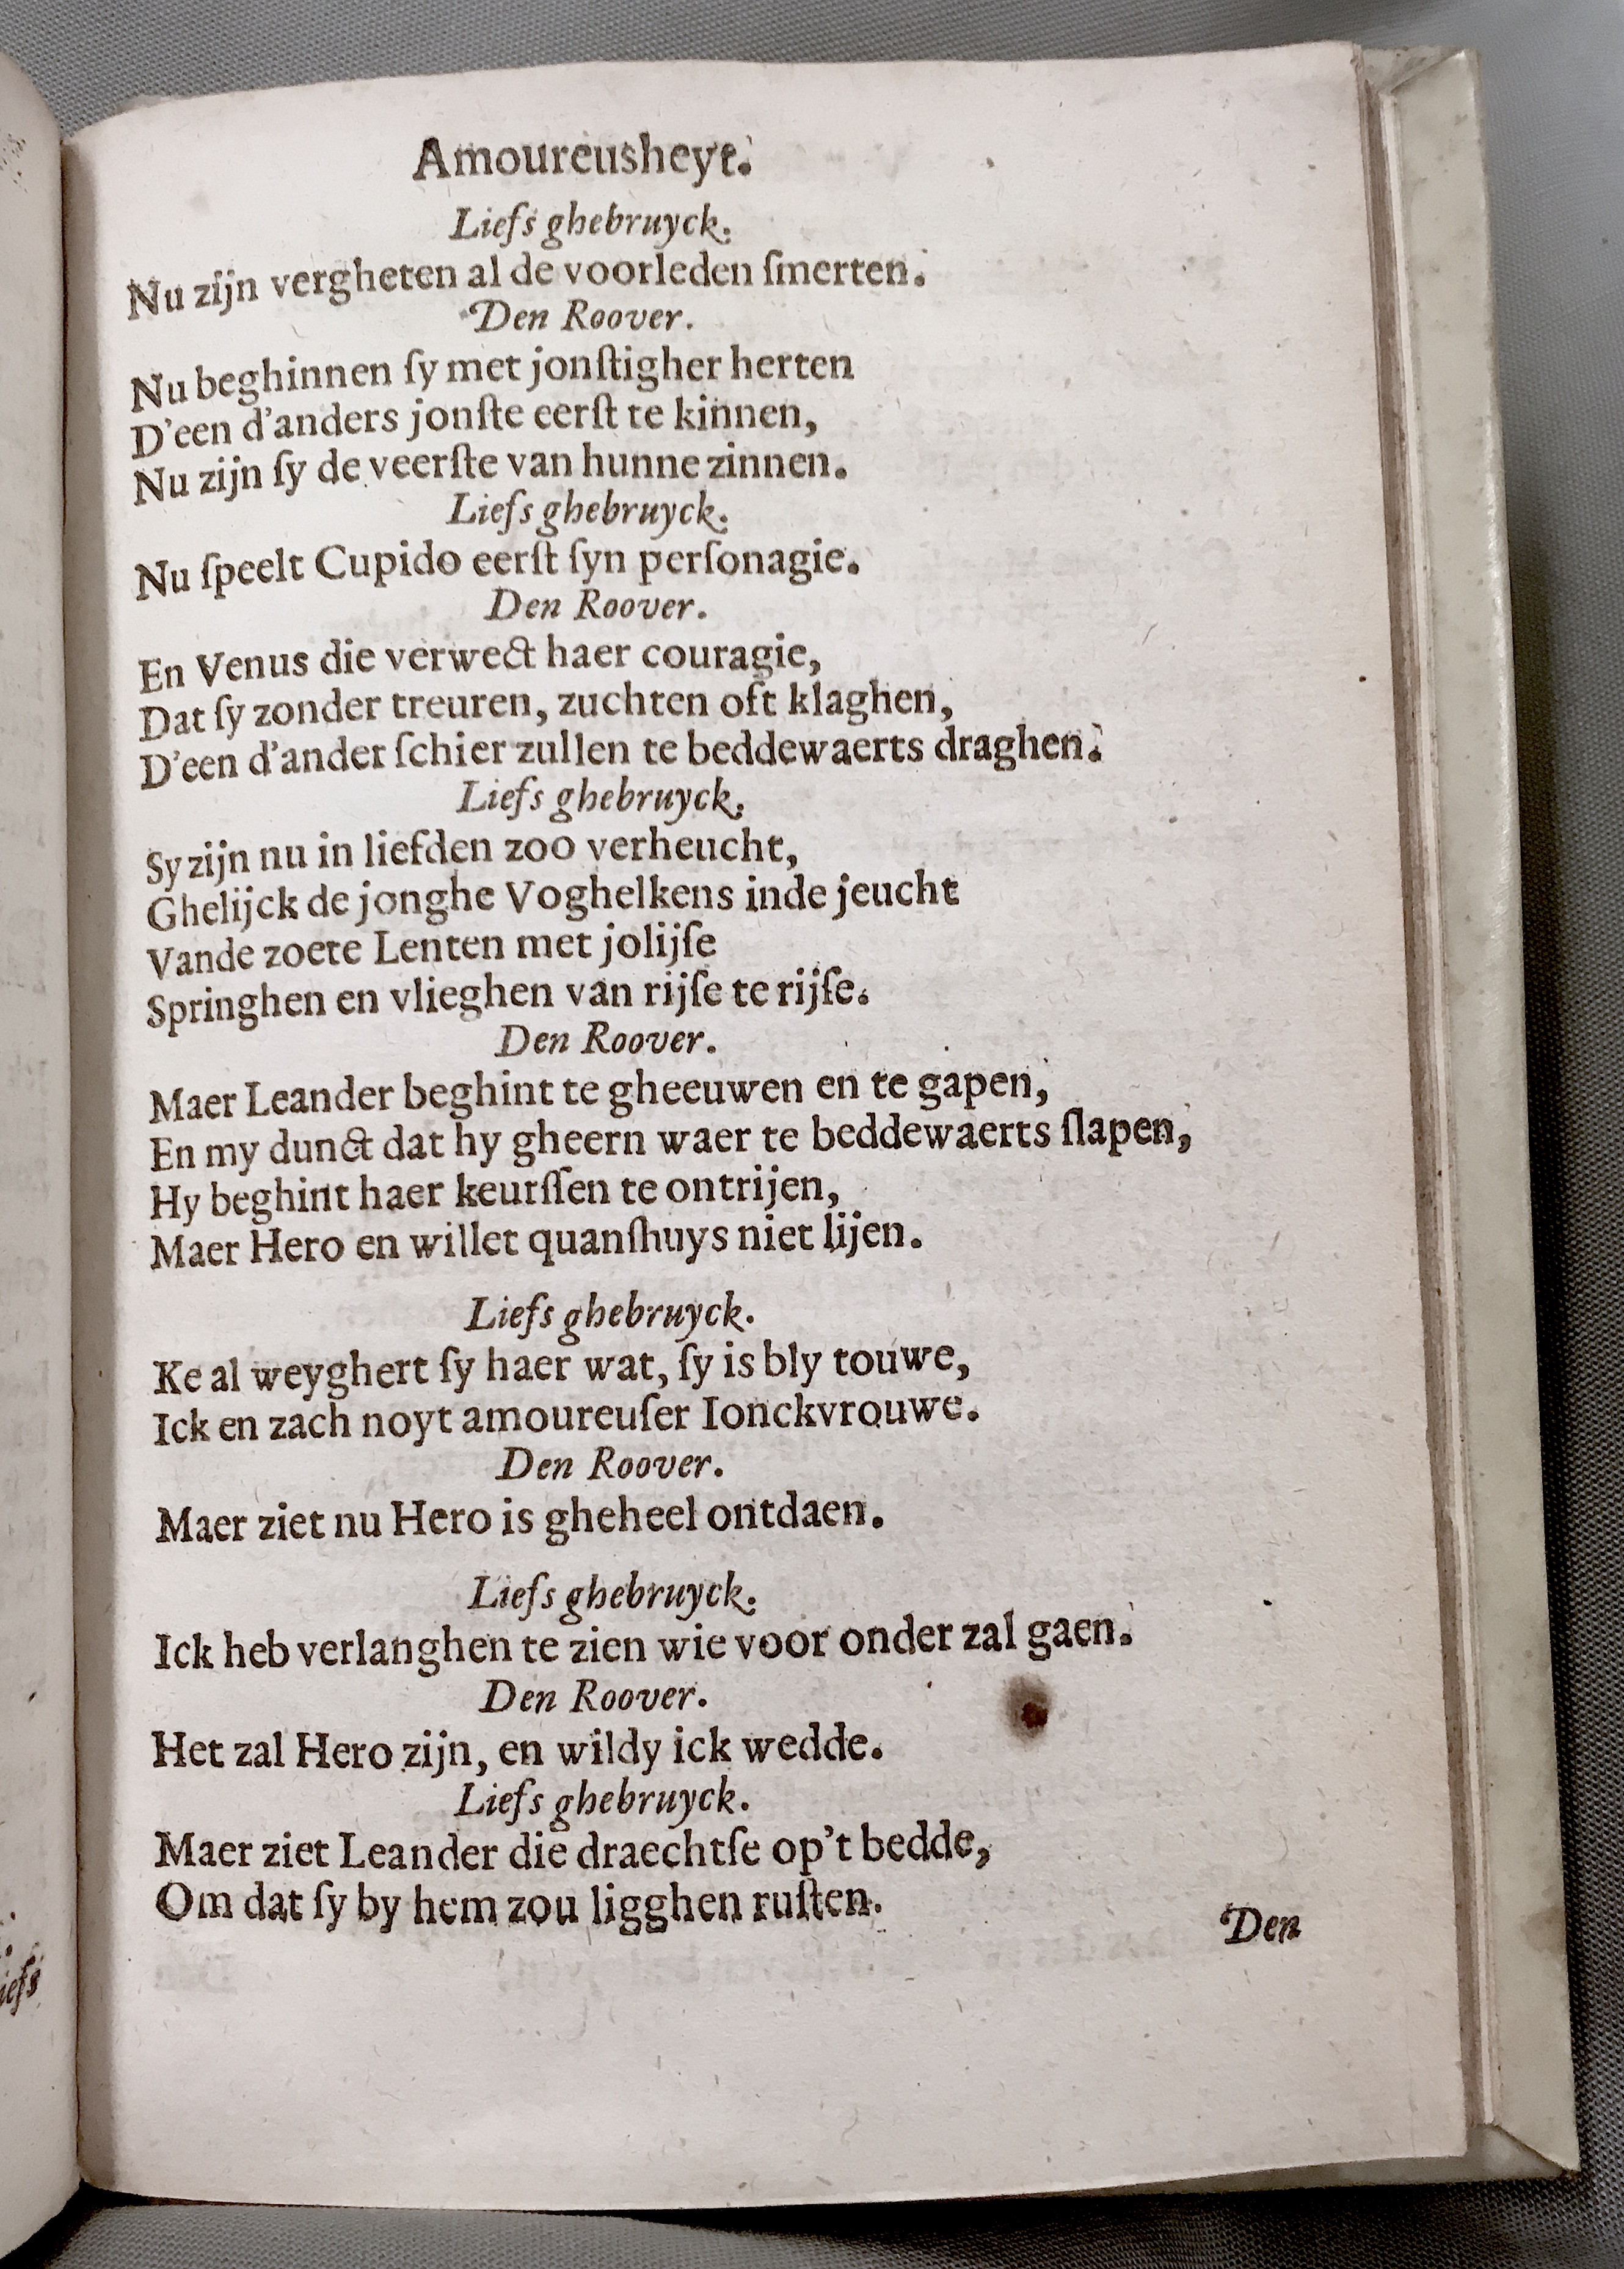 Amoureusheyt.
Liefs ghebruyck.
Nu zijn vergheten al de voorleden ſmerten.
Den Roover.
Nu beghinnen ſy met jonſtigher herten
D'een d'anders jonſte eerſt te kinnen,
Nu zijn ſy de veerſte van hunne zinnen.
Liefs ghebruyck.
Nu ſpeelt Cupido eerſt ſyn perſonagie.
Den Roover.
En Venus die verwect haer couragie,
Dat ſy zonder treuren, zuchten oft klaghen,
D'een d'ander ſchier zullen te beddewaerts draghen.
Liefs ghebruyck.
Sy zijn nu in liefden zoo verheucht,
Ghelijck de jonghe Voghelkens inde jeucht
Vande zoete Lenten met jolijſe
Springhen en vlieghen van rijſe te rijſe.
Den Roover.
Maer Leander beghint te gheeuwen en te gapen,
En my dunct dat hy gheern waer te beddewaerts ſlapen,
Hy beghint haer keurſſen te ontrijen,
Maer Hero en willet quanſhuys niet lijen.
Liefs ghebruyck.
Ke al weyghert ſy haer wat, ſy is bly touwe,
Ick en zach noyt amoureuſer Ionckvrouwe.
Den Roover.
Maer ziet nu Hero is gheheel ontdaen.
Liefs ghebruyck.
Ick heb verlanghen te zien wie voor onder zal gaen.
Den Roover.
Het zal Hero zijn, en wildy ick wedde.
Liefs ghebruyck.
Maer ziet Leander die draechtſe op't bedde,
Om dat ſy by hem zou ligghen ruſten.
Den